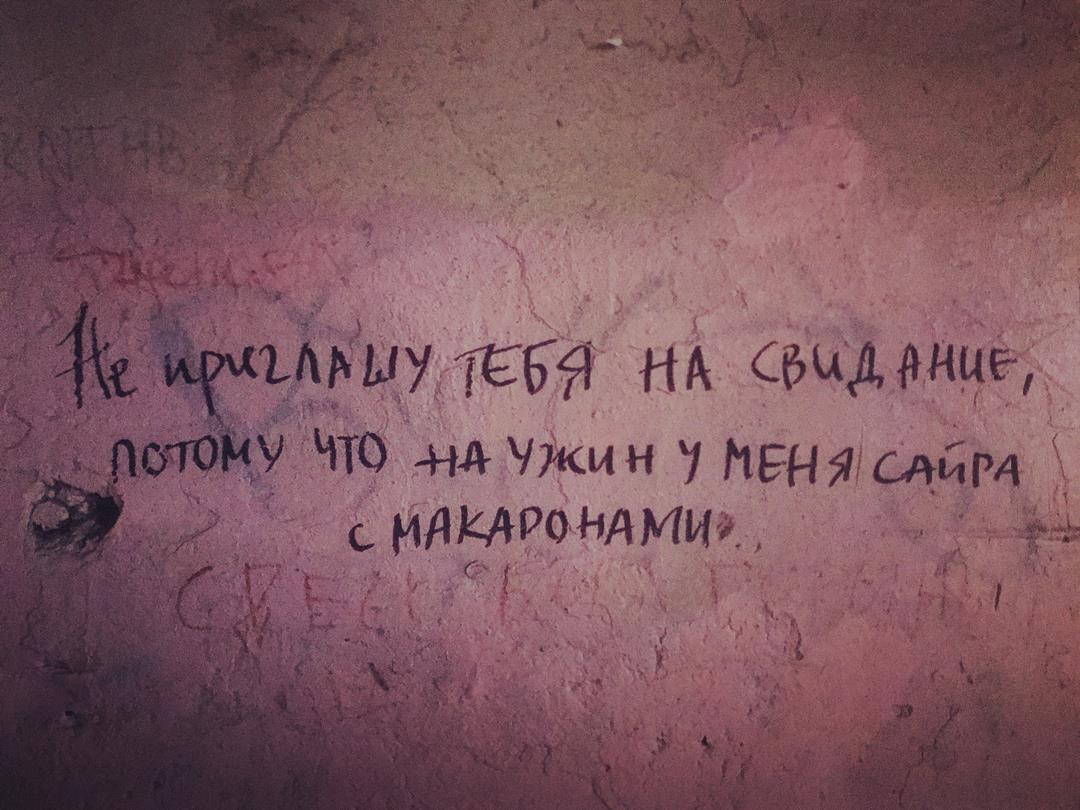 Не приглашу тебя на свидание,
потому что на ужин у меня сайра
с макаронами.